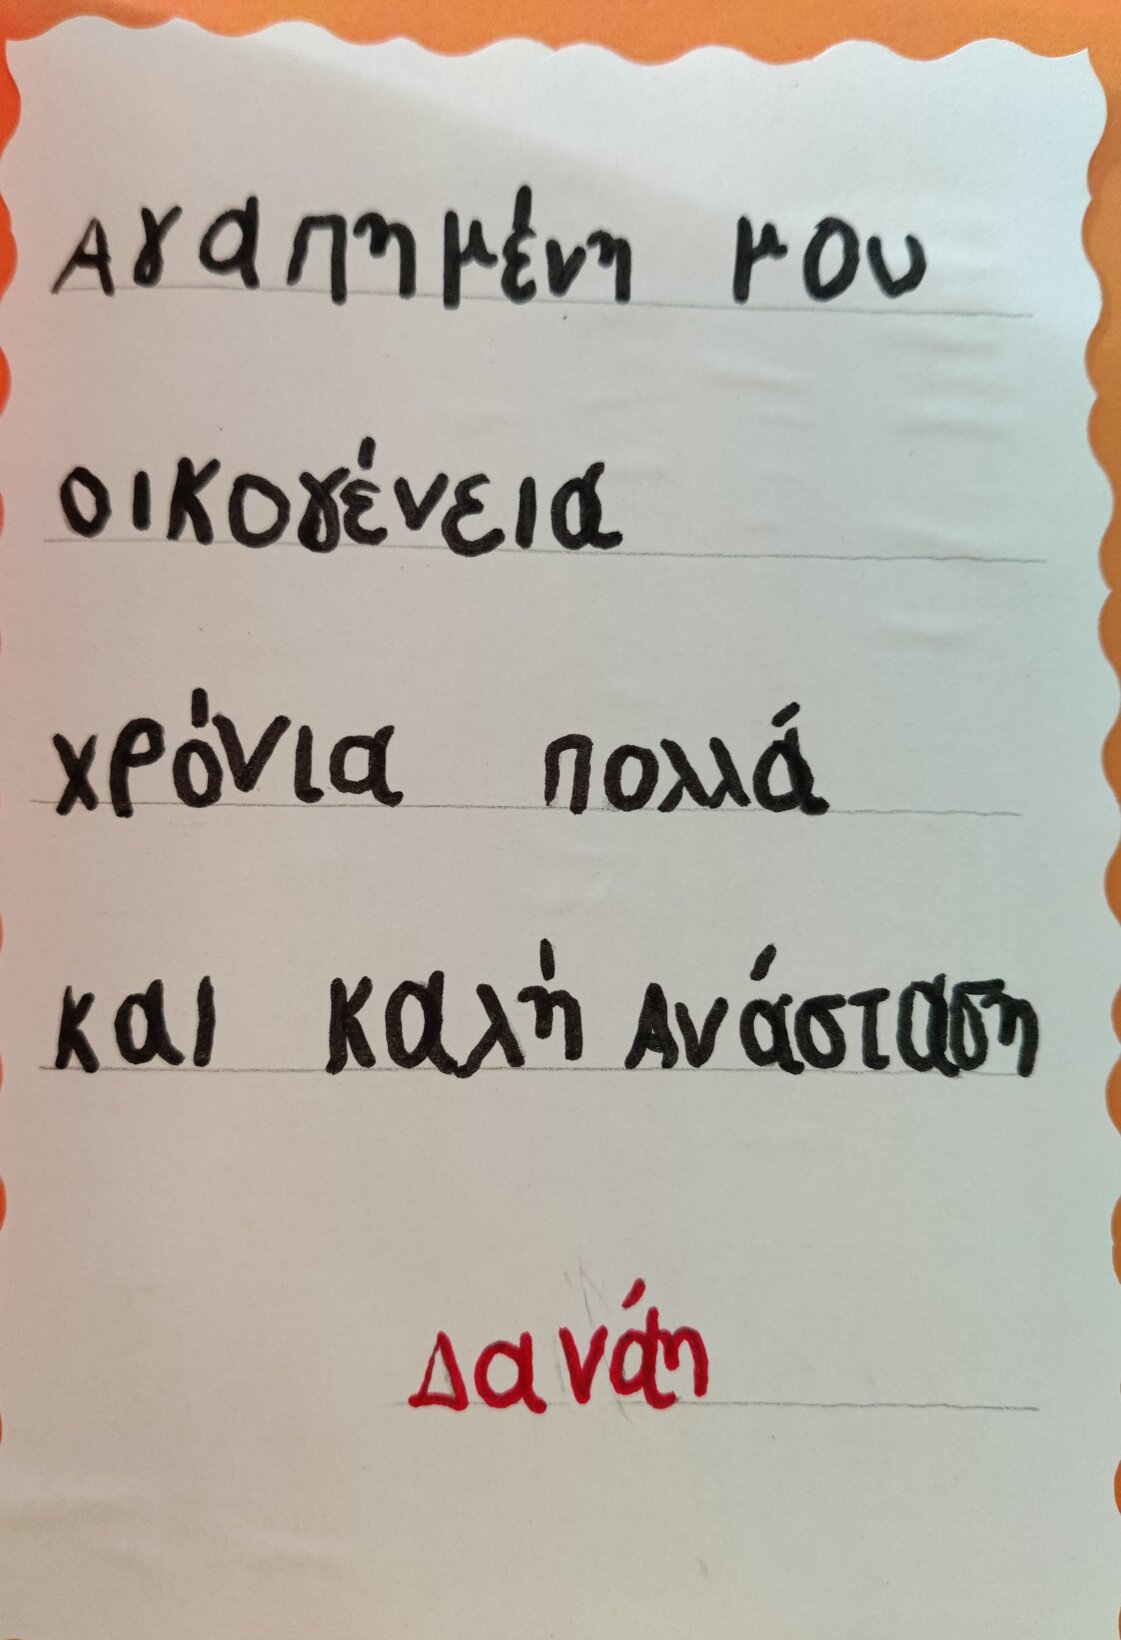 Αγαπημένη μου
οικογένεια
χρόνια πολλά
και καλή Ανάσταση
Δανάη